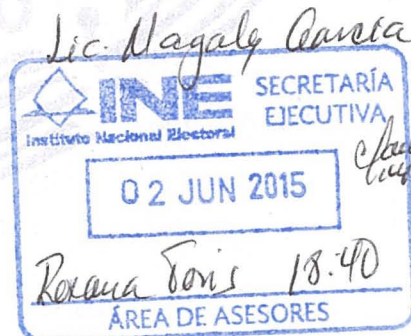 Lic. Magaly García
INE
Instituto Nacional Electoral
SECRETARÍA
EJECUTIVA
02 JUN 2015
Roxana 18:40
ÁREA DE ASESORES